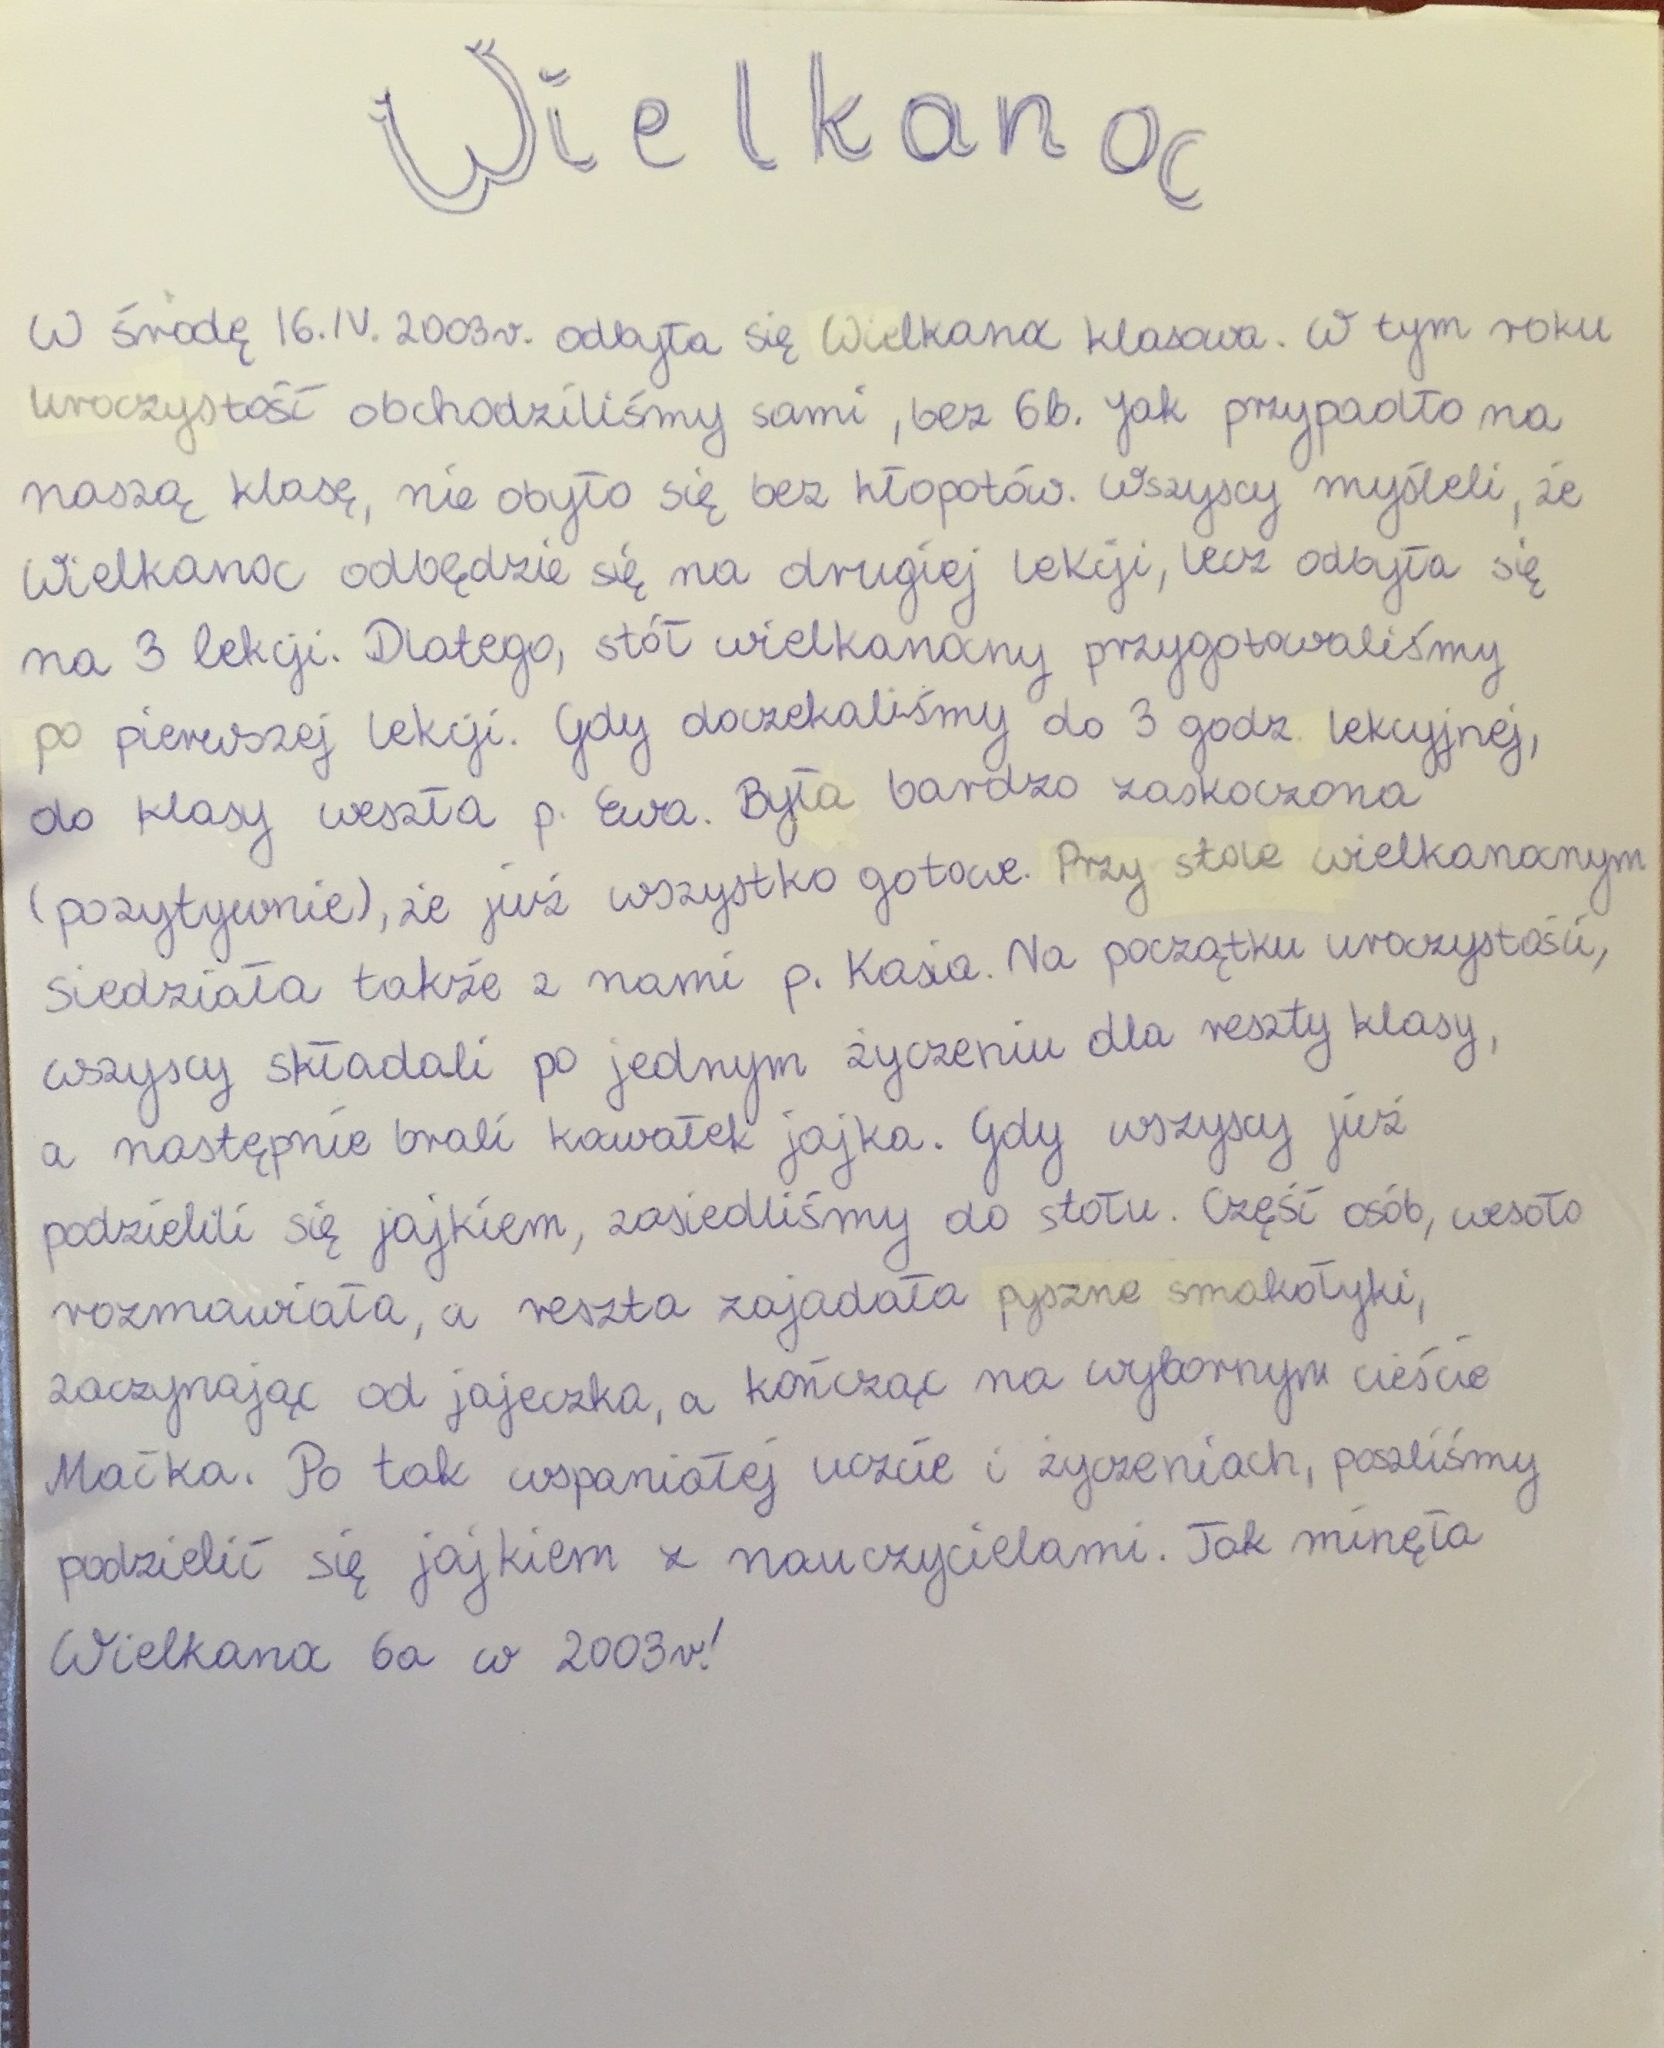 Wielkanoc
W środę 16.IV.2003r. odbyła się Wielkanoc klasowa. W tym roku
uroczystość obchodziliśmy sami, bez 6b. Jak przypadło na
naszą klasę, nie obyło się bez kłopotów. Wszyscy myśleli, że
Wielkanoc odbędzie się na drugiej lekcji, lecz odbyła się
na 3 lekcji. Dlatego, stół wielkanocny przygotowaliśmy
po pierwszej lekcji. Gdy doczekaliśmy do 3 godz. lekcyjnej,
do klasy weszła p. Ewa. Była bardzo zaskoczona
(pozytywnie), że już wszystko gotowe. Przy stole wielkanocnym
siedziała także z nami p. Kasia. Na początku uroczystości,
wszyscy składali po jednym życzeniu dla reszty klasy,
a następnie brali kawałek jajka. Gdy wszyscy już
podzielili się jajkiem, zasiedliśmy do stołu. Część osób, wesoło
rozmawiała, a reszta zajadała pyszne smakołyki,
zaczynając od jajeczka, a kończąc na wybornym cieście
Maćka. Po tak wspaniałej uczcie i życzeniach, poszliśmy
podzielić się jajkiem z nauczycielami. Tak minęła
Wielkanoc 6a w 2003r!